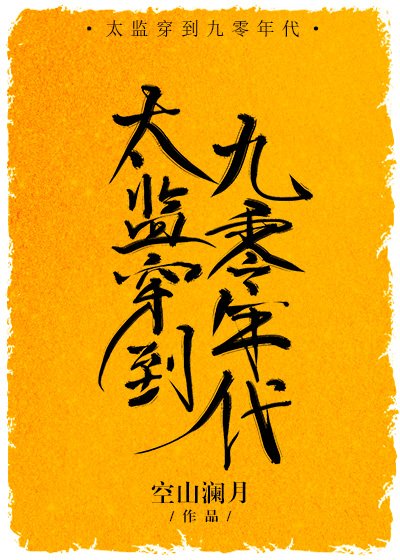 ·太监穿到九零年代·
太监穿到
九零年代
空山澜月
/作品/